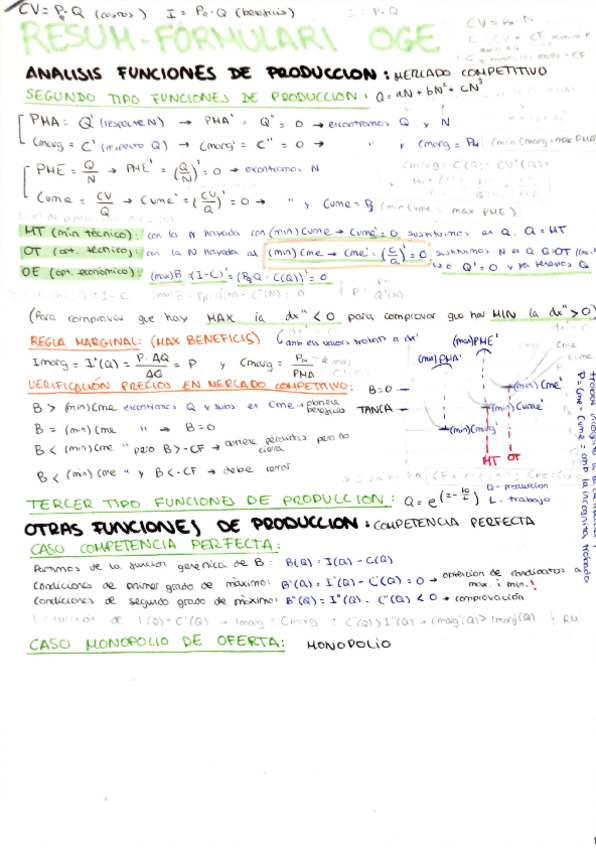 CV = Pq·Q (costos)   I = Pq·Q (beneficis)
RESUM-FORMULARI OGE
ANALISIS FUNCIONES DE PRODUCCION: MERCADO COMPETITIVO
SEGUNDO TIPO FUNCIONES DE PRODUCCION: Q = aN + bN² + cN³
PMA = Q' (respecte N) → PMA' = Q'' = 0 → encontramos Q y N
Cmarg = C' (respecto Q) → Cmarg' = C'' = 0 → " y Cmarg = PM
PME = Q/N → PME' = (Q/N)' = 0 → encontramos N
Cume = CV/Q → Cume' = (CV/Q)' = 0 → " y Cume = P
MT (min técnico): con la N hallada con (min) Cume → Cume' = 0, sustituimos en Q. Q = MT
OT (opt. técnico): con la N hallada al (min) Cme → Cme' = (C/Q)' = 0, sustituimos N en Q Q=OT
OE (opt. económico): (max) B = (I-C)' = (PQ·Q - C(Q))' = 0   Q' = 0 y ya tenemos Q
(Para comprovar que hay MAX la dx'' < 0 para comprovar que hay MIN la dx'' > 0)
REGLA MARGINAL: (MAX BENEFICIS) amb els valors trobats a dx'
Imarg = I'(Q) = P·ΔQ/ΔQ = P y Cmarg = PM/PMA
VERIFICACIÓN PRECIOS EN MERCADO COMPETITIVO:
B > (min) Cme encontramos Q y subs en Cme → obtiene beneficio
B = (min) Cme " → B = 0
B < (min) Cme " pero B > -CF → obtiene perdidas pero no cierra
B < (min) Cme " y B < -CF → debe cerrar
(max) PMA'
(max) PME'
B=0
TANCA
(min) Cme'
(min) Cume'
(min) Cmarg'
MT OT
P = Cme = Cume = amb la incognita trobada
TERCER TIPO FUNCIONES DE PRODUCCION: Q = e^(2-10/L)
Q - produccion
L - trabajo
OTRAS FUNCIONES DE PRODUCCION: COMPETENCIA PERFECTA
CASO COMPETENCIA PERFECTA:
Partimos de la funcion generica de B: B(Q) = I(Q) - C(Q)
Condiciones de primer grado de màximo: B'(Q) = I'(Q) - C'(Q) = 0 → obtencion de candidatos a max. i min.!
Condiciones de segundo grado de màximo: B''(Q) = I''(Q) - C''(Q) < 0 → comprovación
CASO MONOPOLIO DE OFERTA: MONOPOLIO